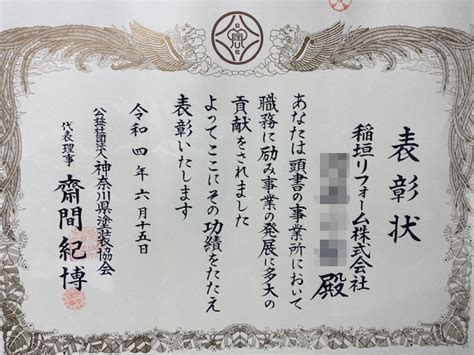 表彰状
稲垣リフォーム株式会社
殿
あなたは頭書の事業所において
職務に励み事業の発展に多大の
貢献をされました
よってここにその功績をたたえ
表彰いたします
令和四年六月十五日
公益社団法人神奈川県塗装協会
代表理事 齋間紀博